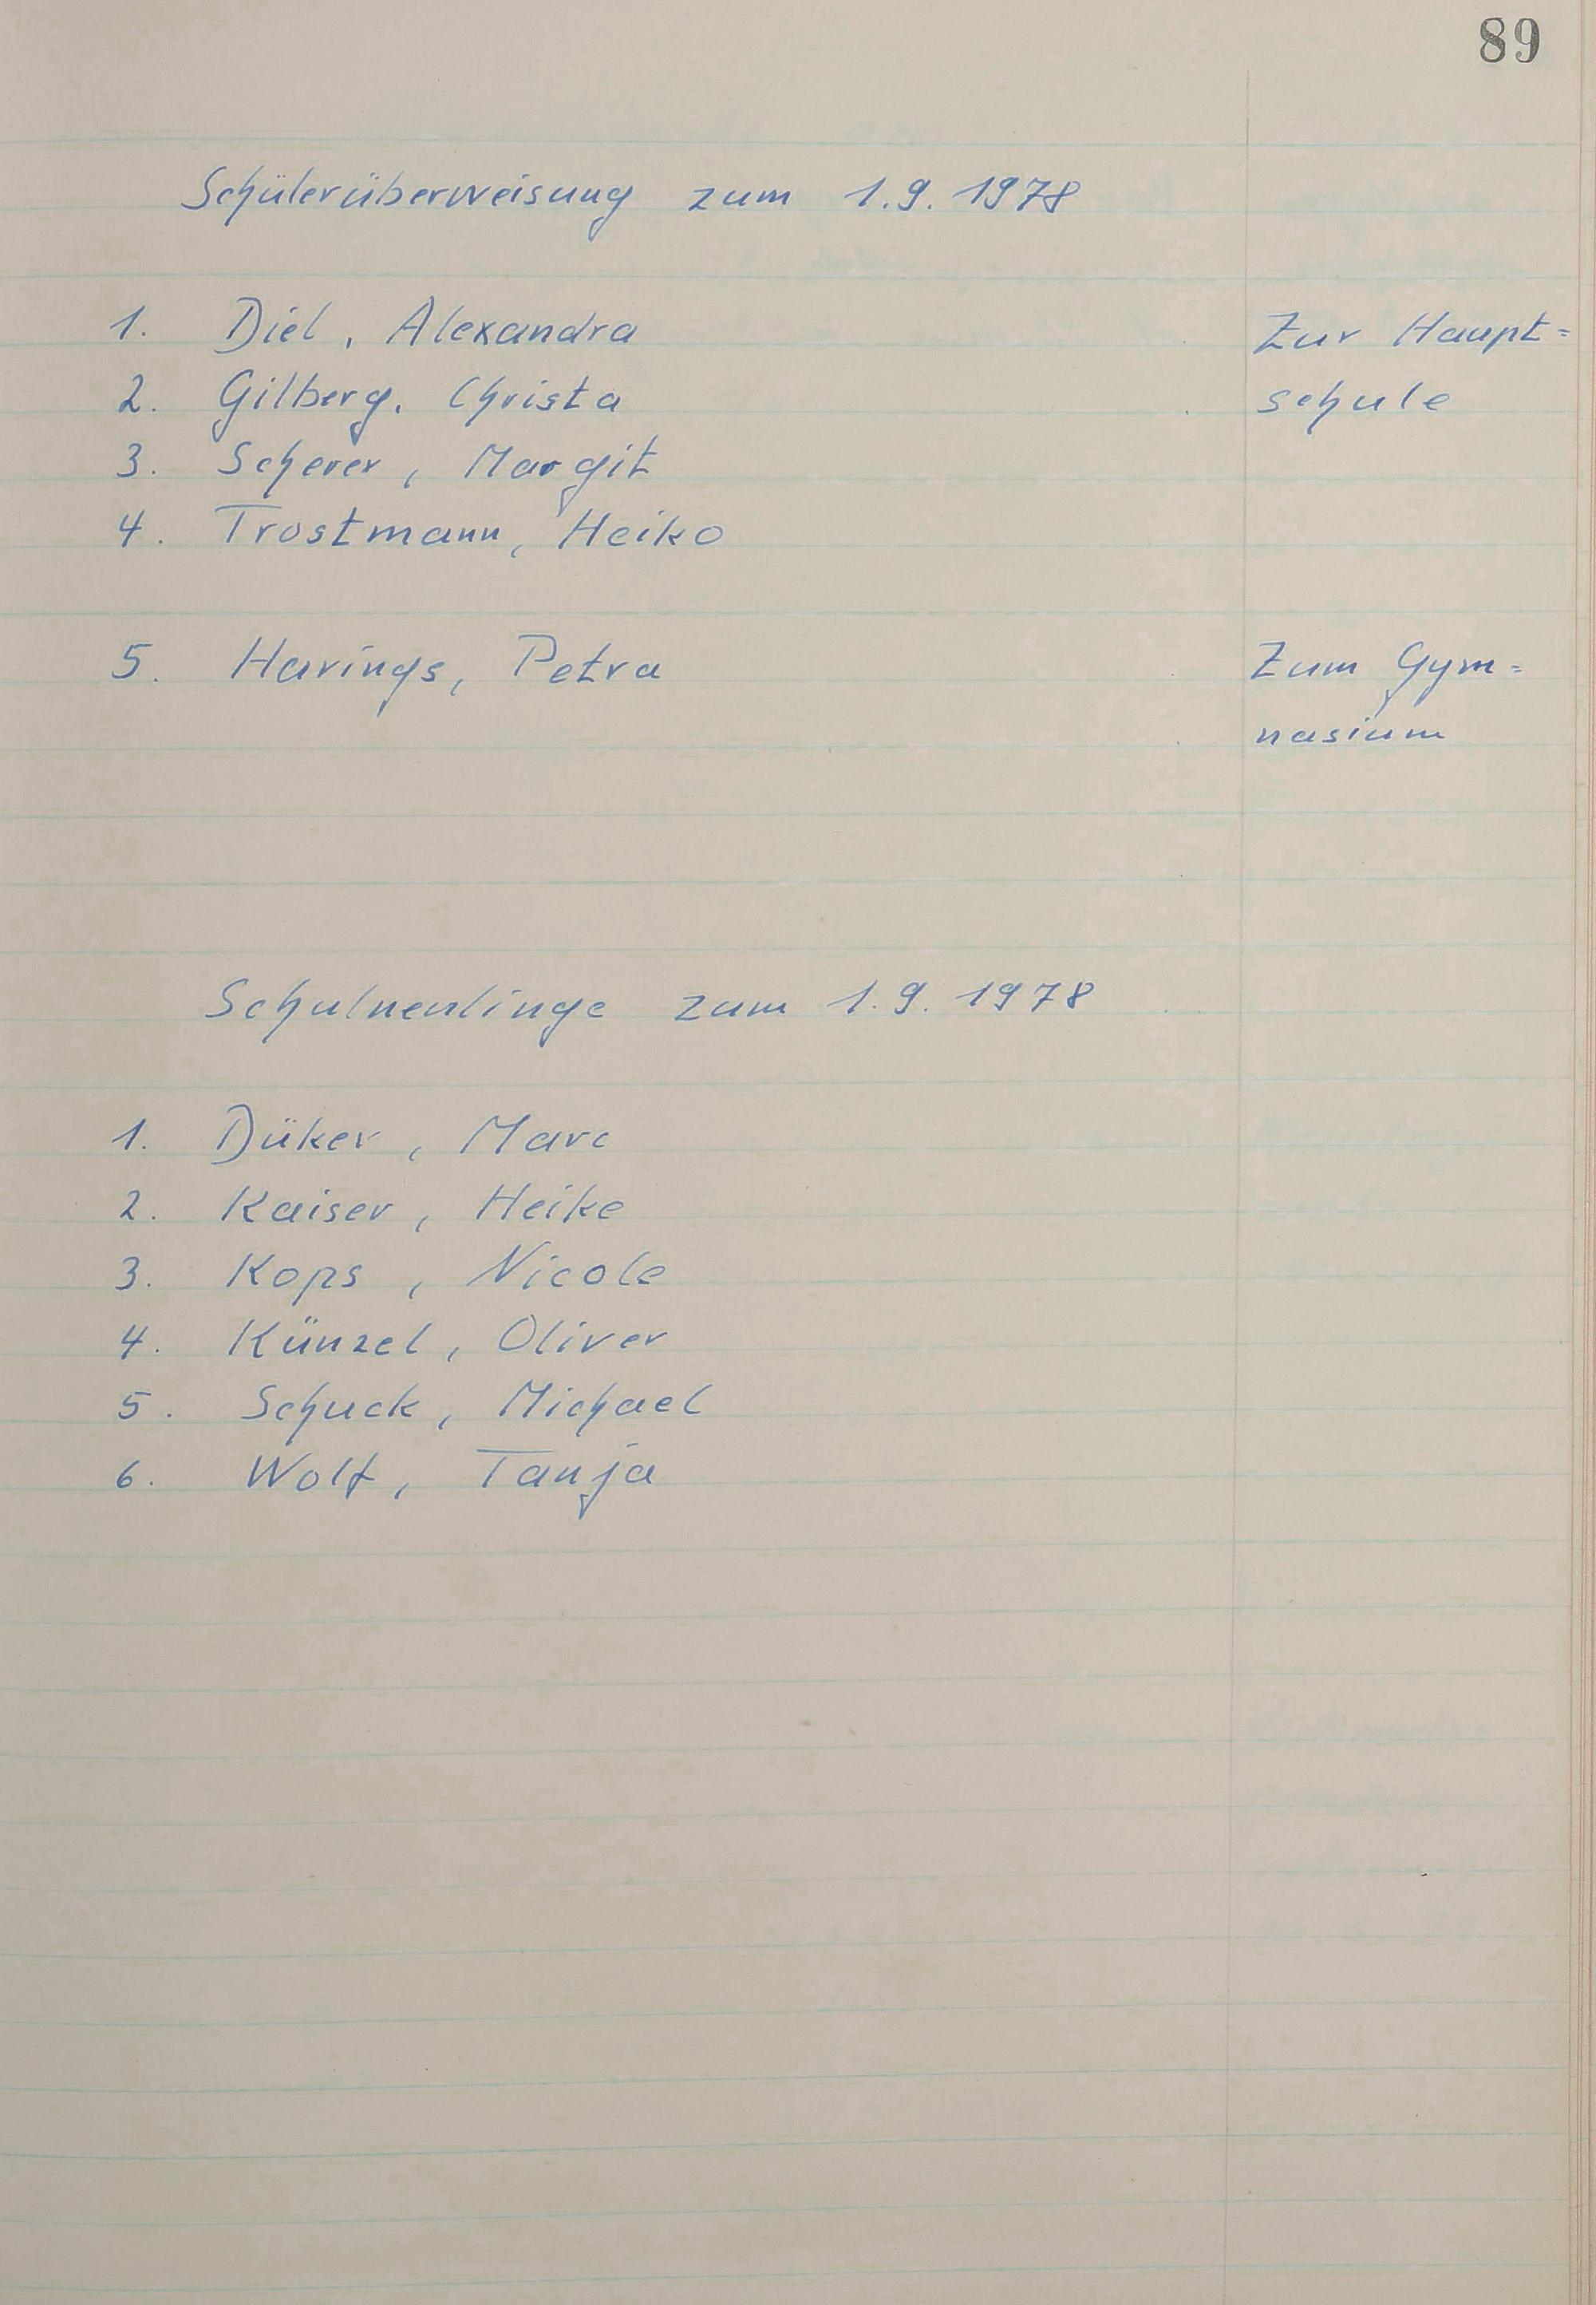 89
Schülerüberweisung zum 1.9.1978
1. Diel, Alexandra Zur Haupt=
2. Gilberg, Christa schule
3. Scherer, Margit
4. Trostmann, Heiko
5. Harings, Petra Zum Gym=
nasium
Schulneulinge zum 1.9.1978
1. Düker, Marc
2. Kaiser, Heike
3. Kops, Nicole
4. Künzel, Oliver
5. Schuck, Michael
6. Wolf, Tanja